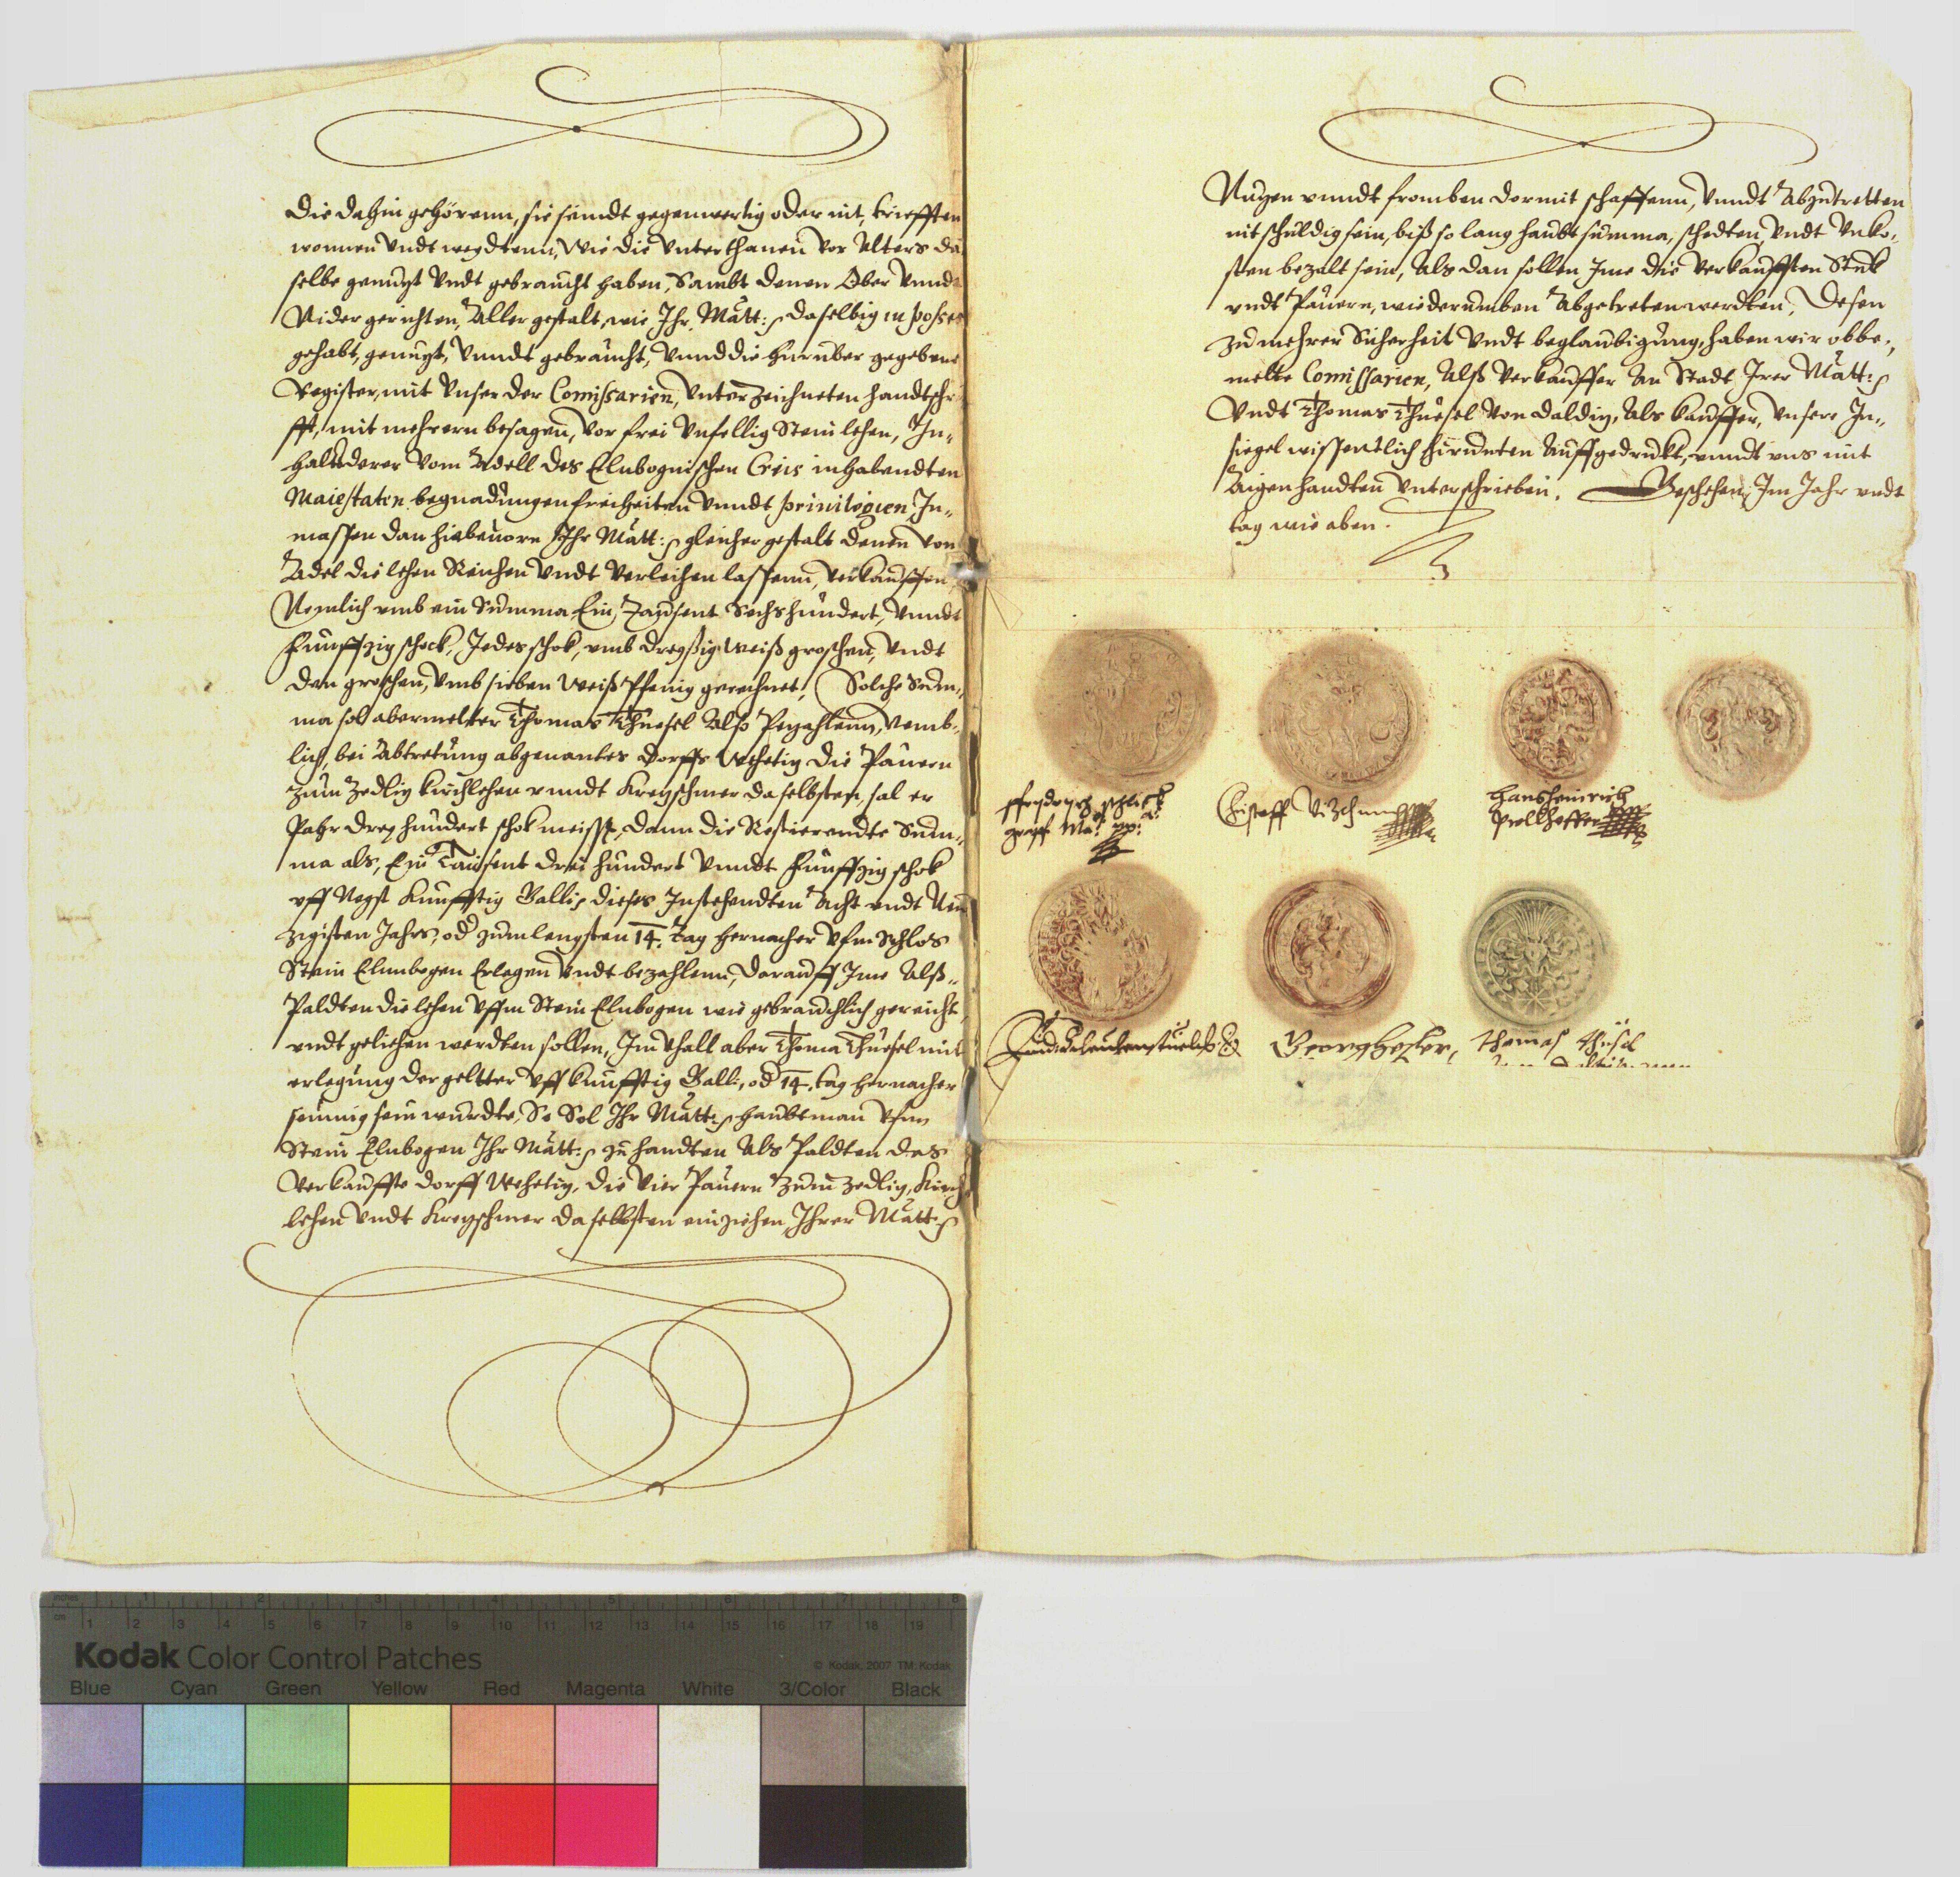 die dahin gehörenn, sie seindt gegenwertig oder nit, trieftten
wonnen vndt weydtenn, Wie die Vnterthanen vor Alters da
selbe genuzt vndt gebraucht haben, Sambt denen Ober vnnd
Nider gerichten, Aller gestalt, wie Ihr Matt: daselbig in posses
gehabt, genuzt, vnndt gebraucht, vnnd die hierüber gegebene
Register, mit Vnser der Comissarien, Vnterzeichneten handtschr
fft, mit mehrern besagen, vor frei Vnfellig Steinlehen, In„
halts derer vom Adell des Elnbognischen Creis inhabendten
Maiestaten, begnadungen freiheiten vnndt priuilegien, In„
massen dan hiebeuorn Ihr Matt: gleicher gestalt denen von
Adel die lehen Reichen vndt verleihen lassenn, verkaufften
Nemlich vmb ein Summa, Ein Tausent Sechshundert, vnndt
Funffzig schock, Jedes schok, vmb dreyßig weiß groschen, vndt
den groschen, vmb sieben weiß Pfenig gerechnet, Solche Sum„
ma sol abermelter Thomas Thüesel Also Pezahlenn, Nemb„
lich, bei Abtretung abgenantes dorffs Wehetiz die Pauern
zum Zedliz kirchlehen vnndt Krezschmer daselbsten, sal er
Pahr drey hundert schok meissn, dann die Restierendte Sum„
ma als, Ein Tausent drei hundert vnndt Funffzig schok
vff Negst Kunfftig Galli, dieses Instehendten Acht vndt Neun
zigisten Jahrs, od zum lengsten 14. tag hernacher vfm Schlos
Stein Elnbogen Erlegen vndt bezahlenn, darauff Ime Alß„
Paldten die lehen vffm Stein Elnbogen wie gebreuchlich gereicht
vndt geliehen werdten sollen, Im vhall aber Thoma Thüesel mit
erlegung der geltter vff kunfftig Galli, od 14. tag hernacher
seumig sein wurdte, So Sol Ihr Matt: haubtman vfm
Stein Elnbogen Ihr Matt: zu handten Als Paldten das
verkauffte dorff Wehetiz, die Vier Pauern zum Zedliz, Kirch
lehen vndt Krezschmer daselbsten einziehen, Ihrer Matt:
Nuzen vnndt fromben darmit schaffenn, vnndt Abzutretten
nit schuldig sein, biß so lang haubt summa, schedten, vndt Vnko„
sten bezalt sein, Als dan sollen Ime die verkaufften Stuk
vndt Pauern, wiederumben Abgetreten werdten, Desen
zu mehrer Sicherheit vndt beglaubigung, haben wir obbe„
melte Comissarien, Alß verkauffer An Stadt Irer Matt:
vndt Thomas Thüesel von daldiz, Als kauffer, Vnsere In„
siegel wissentlich hirunten Auffgedrukt, vnndt vns mit
Aigen handten vnterschrieben. Geschehen Im Jahr vndt
tag wie oben.
ffrydrych schlick
graff
Cristoff Vizthum
Hansheinrich
Georg
thomas thüsel
Kodak Color Control Patches
© Kodak, 2007 TM: Kodak
inches 1 2 3 4 5 6 7 8
cm 1 2 3 4 5 6 7 8 9 10 11 12 13 14 15 16 17 18 19
Blue Cyan Green Yellow Red Magenta White 3/Color Black